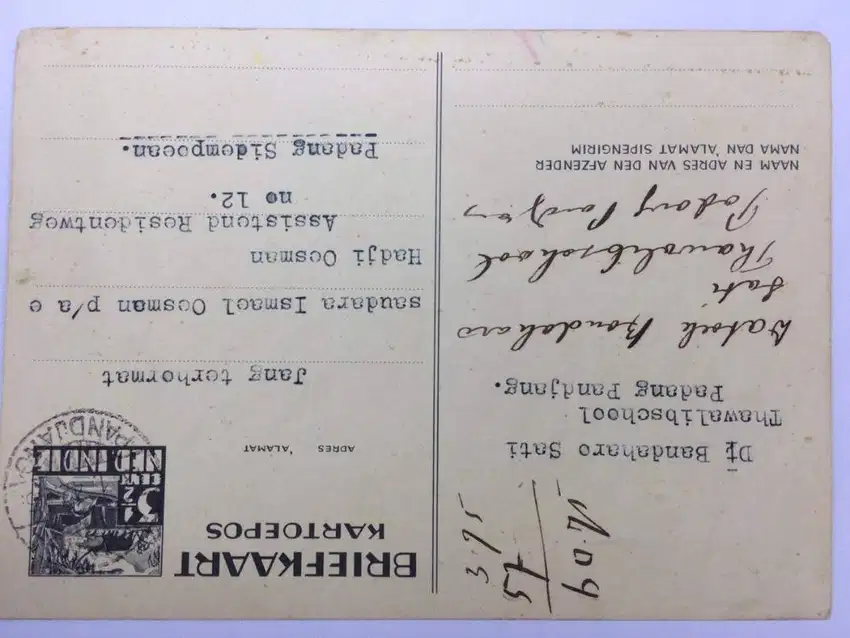 BRIEFKAART
KARTOEPOS
3 1/2
CENT
NED. INDIE
PANDJANG
ADRES 'ALAMAT
Jang terhormat
saudara Ismael Oesman p/a e
Hadji Oesman
Assistend Residentweg
no 12.
Padang Sidempoean.
Dt Bandaharo Sati
Thawalibschool
Padang Pandjang.
Datoek Bandaharo
Sati
Thawalibschool
Padang Pandjang
NAAM EN ADRES VAN DEN AFZENDER
NAMA DAN 'ALAMAT SIPENGIRIM